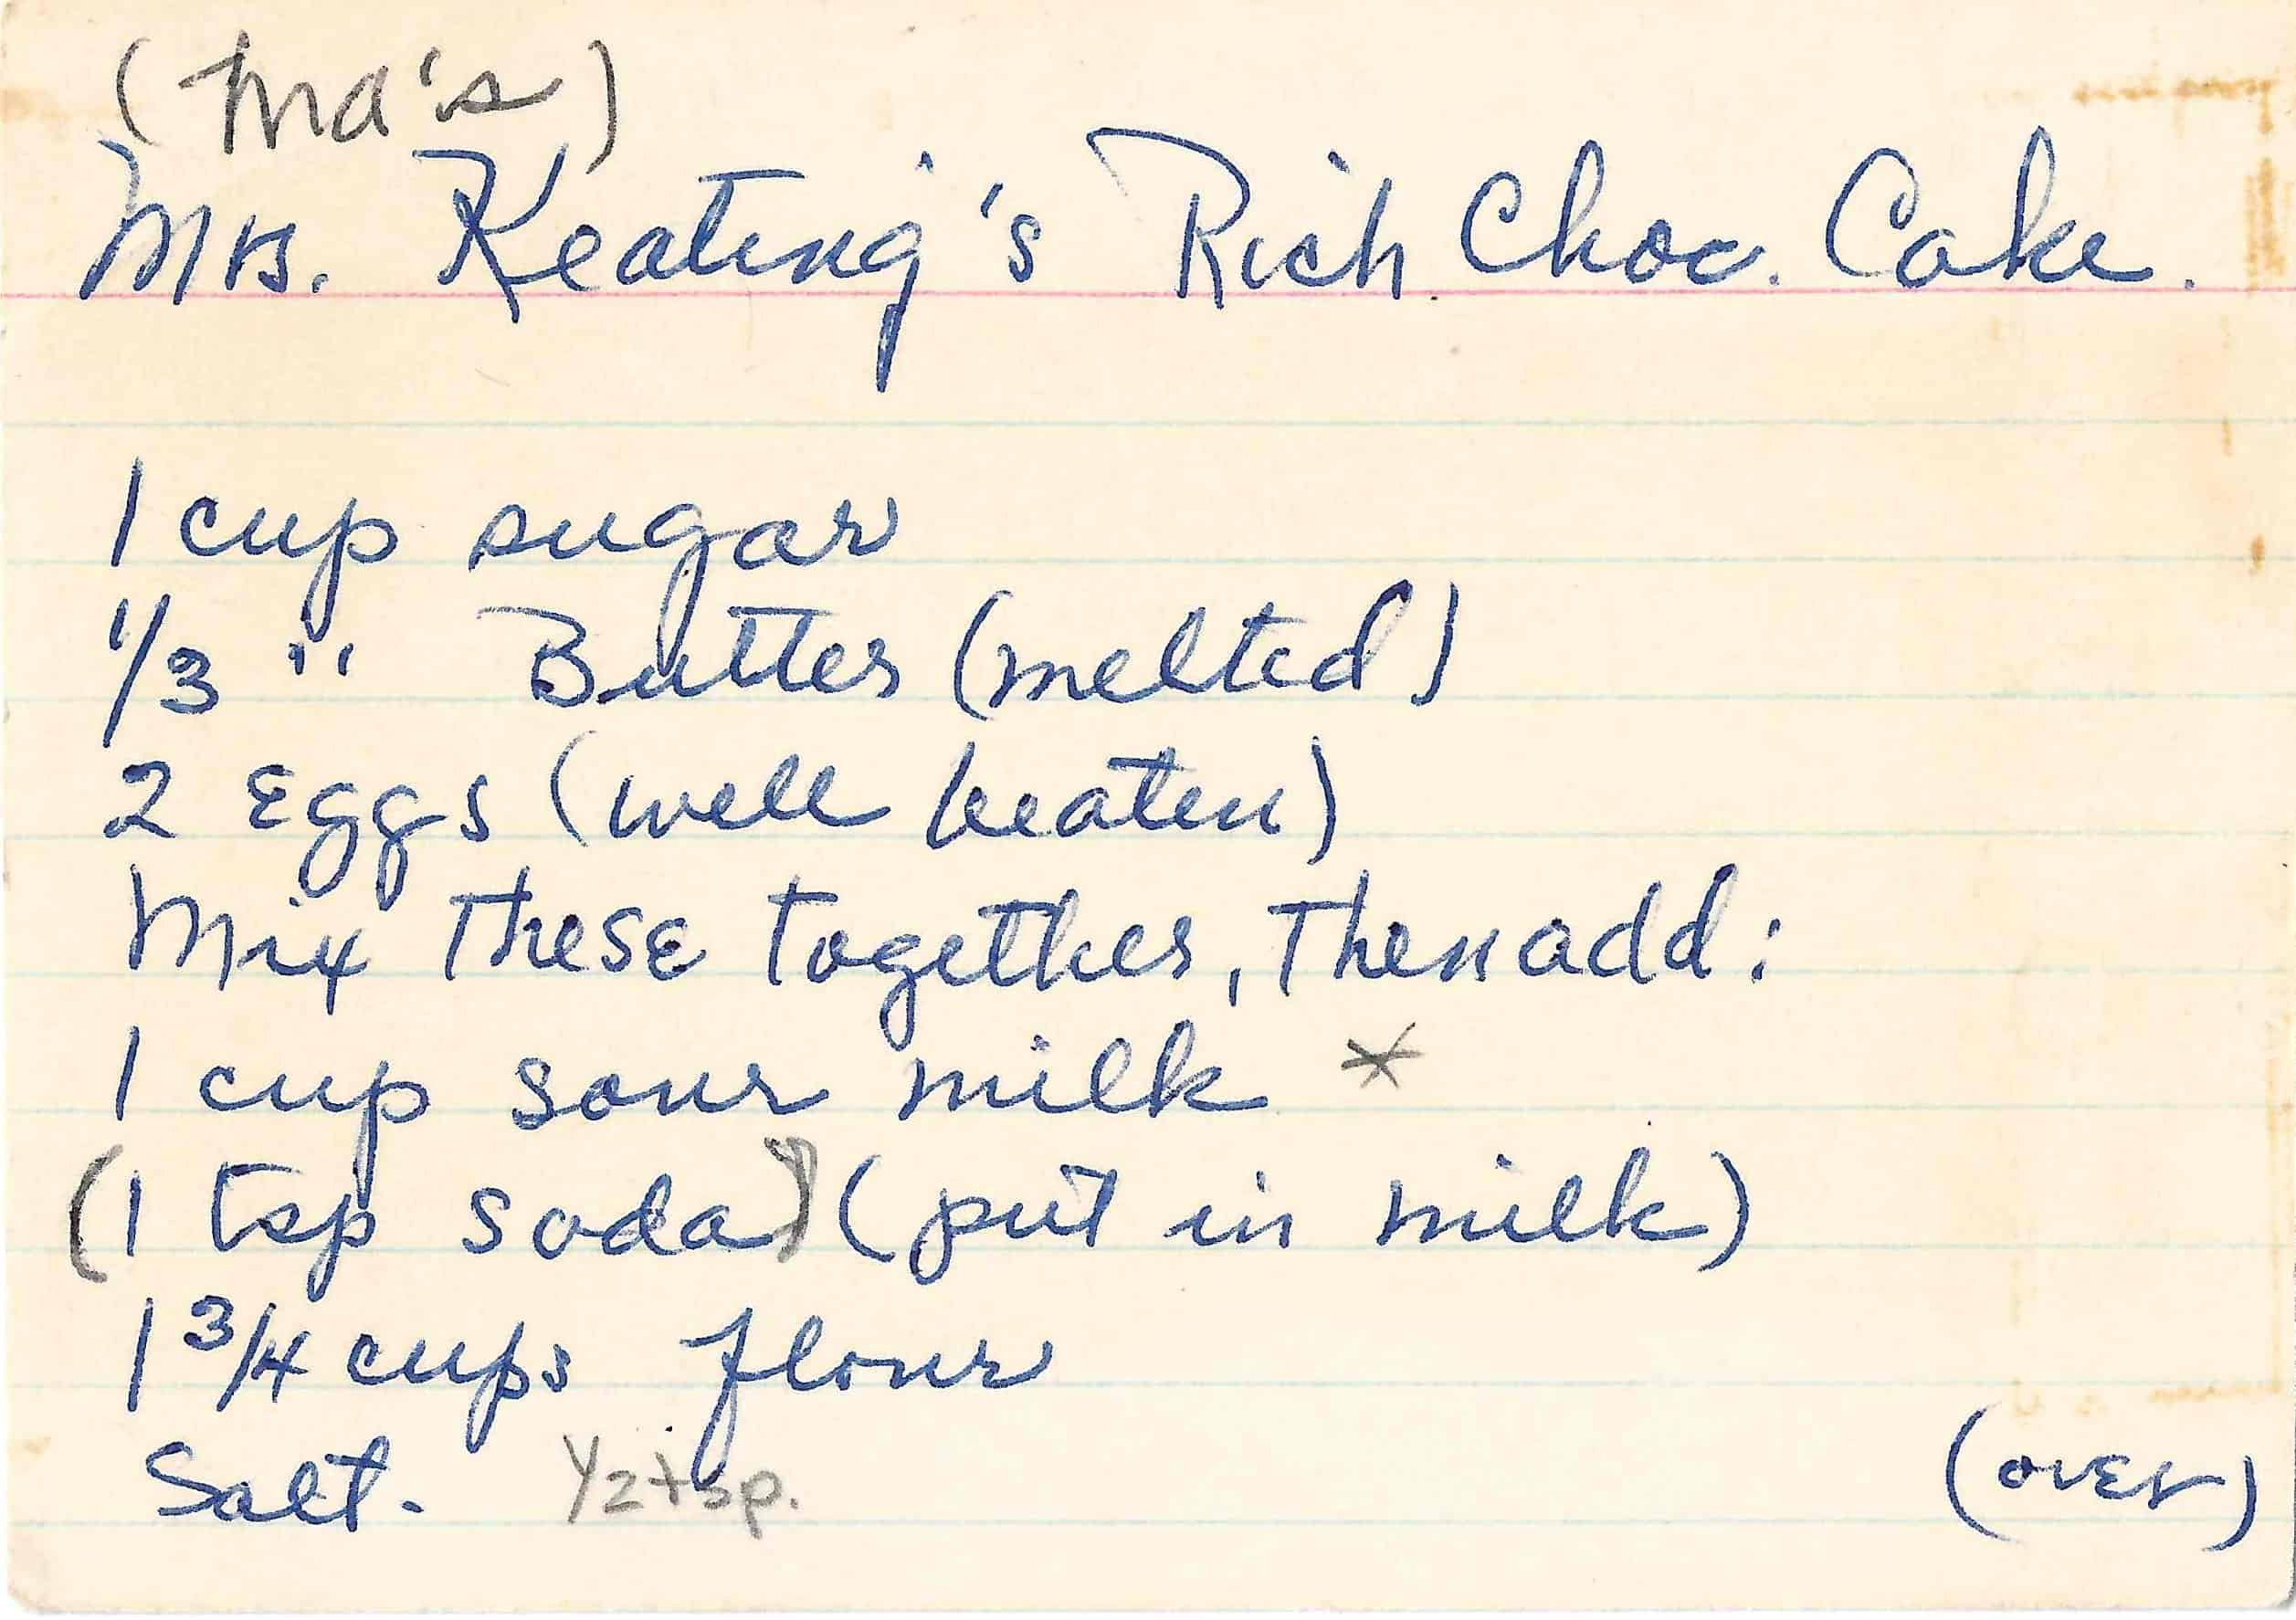 (Ma's)
Mrs. Keating's Rich Choc. Cake.
1 cup sugar
1/3 " Butter (melted)
2 Eggs (well beaten)
Mix These Together, Then add:
1 cup sour milk *
(1 tsp soda) (put in milk)
1 3/4 cups flour
Salt. 1/2 tsp.
(over)